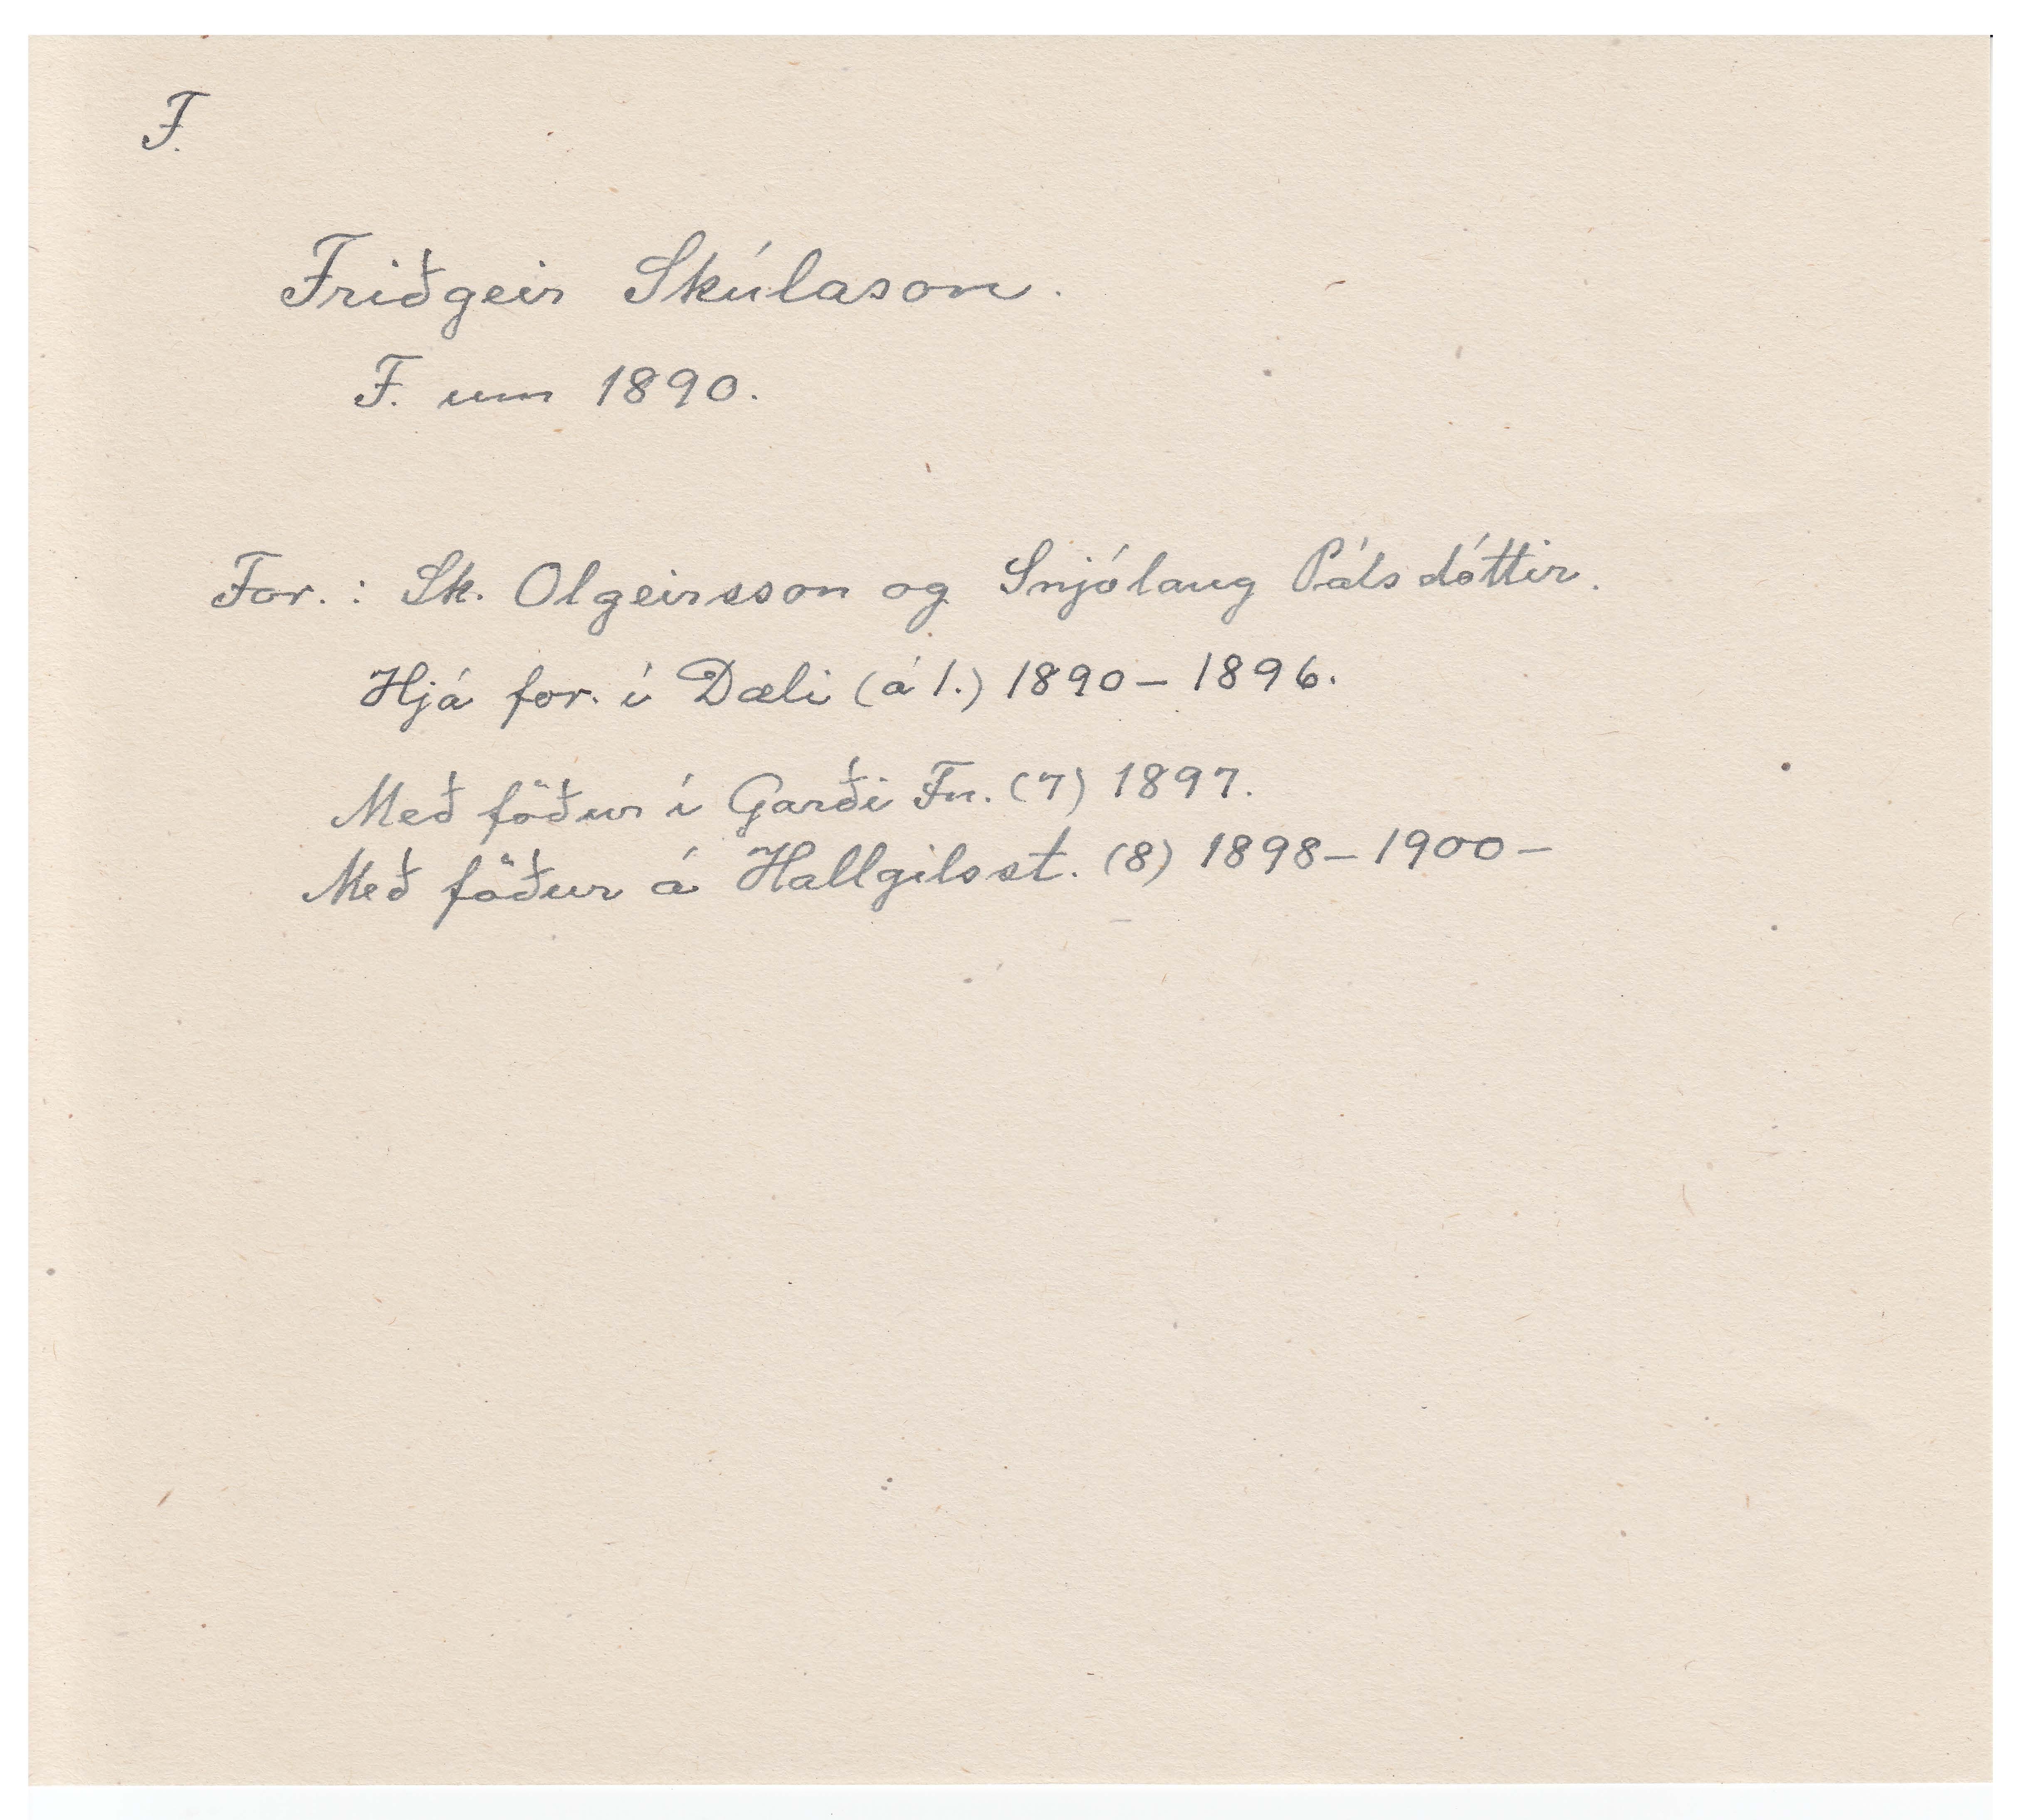 F.
Friðgeir Skúlason.
F. um 1890.
For.: Sk. Olgeirsson og Snjólaug Pálsdóttir.
Hjá for. í Dæli (á 1.) 1890 – 1896.
Með föður í Garði Fn. (7) 1897.
Með föður á Hallgilsst. (8) 1898 – 1900 –